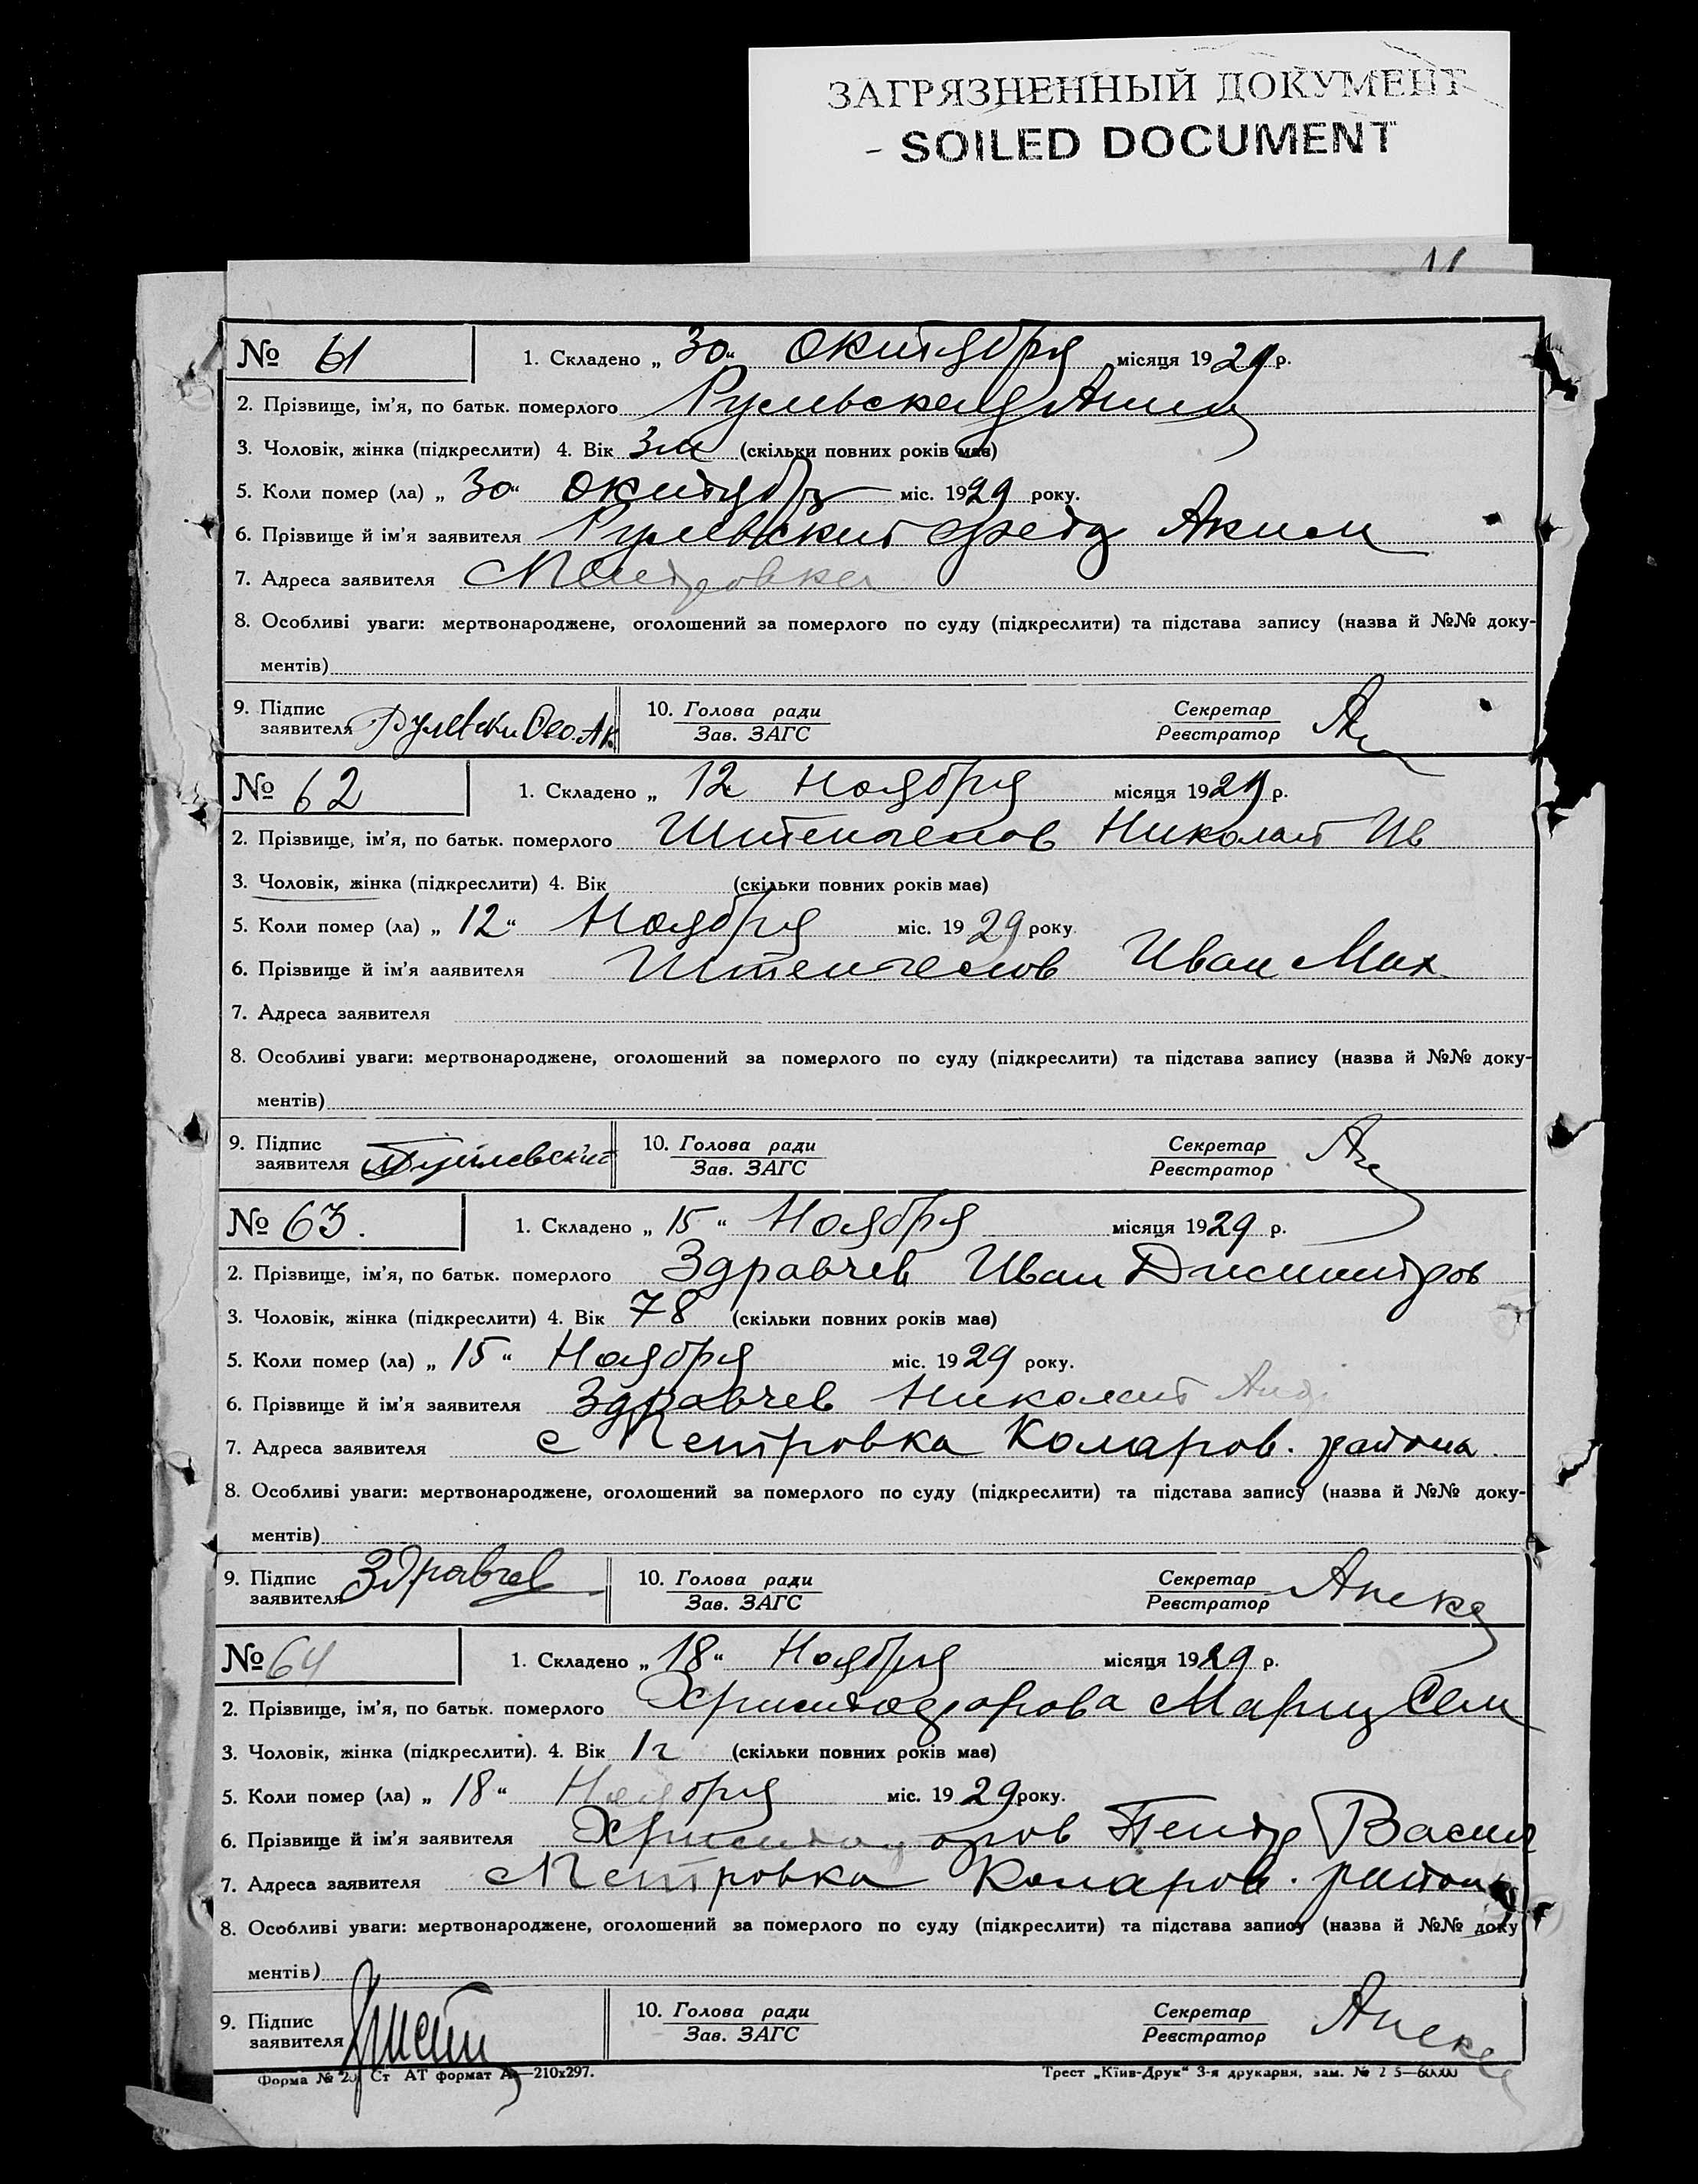 ЗАГРЯЗНЕННЫЙ ДОКУМЕНТ
- SOILED DOCUMENT
№ 61 1. Складено „ 30 “ октября місяця 1929 р.
2. Прізвище, ім’я, по батьк. померлого
3. Чоловік, жінка (підкреслити) 4. Вік 3м (скільки повних років має)
5. Коли помер (ла) „ 30 “ октября міс. 1929 року.
6. Прізвище й ім’я заявителя Рулевский Аким
7. Адреса заявителя с Петровка
8. Особливі уваги: мертвонароджене, оголошений за померлого по суду (підкреслити) та підстава запису (назва й №№ доку-
ментів)
9. Підпис 10. Голова ради Секретар
заявителя Зав. ЗАГС Реєстратор
№ 62 1. Складено „ 12 Ноября місяця 1929 р.
2. Прізвище, ім’я, по батьк. померлого Николай Ив
3. Чоловік, жінка (підкреслити) 4. Вік (скільки повних років має)
5. Коли помер (ла) „ 12 “ Ноября міс. 1929 року
6. Прізвище й ім’я ааявителя Иван Мих
7. Адреса заявителя
8. Особливі уваги: мертвонароджене, оголошений за померлого по суду (підкреслити) та підстава запису (назва й №№ доку-
ментів)
9. Підпис 10. Голова ради Секретар
заявителя Зав. ЗАГС Реєстратор
№ 63. 1. Складено „ 15 “ Ноября місяця 1929 р.
2. Прізвище, ім’я, по батьк. померлого Здравчев Иван Димитров
3. Чоловік, жінка (підкреслити) 4. Вік 78 (скільки повних років має)
5. Коли помер (ла) „ 15 “ Ноября міс. 1929 року.
6. Прізвище й ім’я заявителя Здравчев Николай
7. Адреса заявителя с Петровка Коларов. района.
8. Особливі уваги: мертвонароджене, оголошений за померлого по суду (підкреслити) та підстава запису (назва й №№ доку-
ментів)
9. Підпис Здравчев 10. Голова ради Секретар
заявителя Зав. ЗАГС Реєстратор
№ 64 1. Складено „ 18 “ Ноября місяця 1929 р.
2. Прізвище, ім’я, по батьк. померлого Христофорова Мария Сем
3. Чоловік, жінка (підкреслити). 4. Вік 1 г (скільки повних років має)
5. Коли помер (ла) „ 18 “ Ноября міс. 1929 року.
6. Прізвище й ім’я заявителя Христофоров Петр Васил
7. Адреса заявителя с Петровка Коларов. района
8. Особливі уваги: мертвонароджене, оголошений за померлого по суду (підкреслити) та підстава запису (назва й №№ доку
ментів)
9. Підпис 10. Голова ради Секретар
заявителя Зав. ЗАГС Реєстратор
Форма № Ст АТ формат 210х297. Трест „Київ-Друк“ 3-я друкарня, зам. №